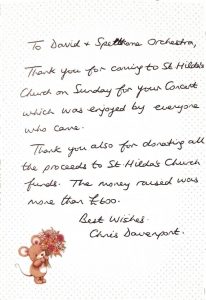 To David + Spelthorne Orchestra,
Thank you for coming to St. Hilda's
Church on Sunday for your Concert
which was enjoyed by everyone
who came.
Thank you also for donating all
the proceeds to St. Hilda's Church
funds. The money raised was
more than £600.
Best Wishes.
Chris Davenport.